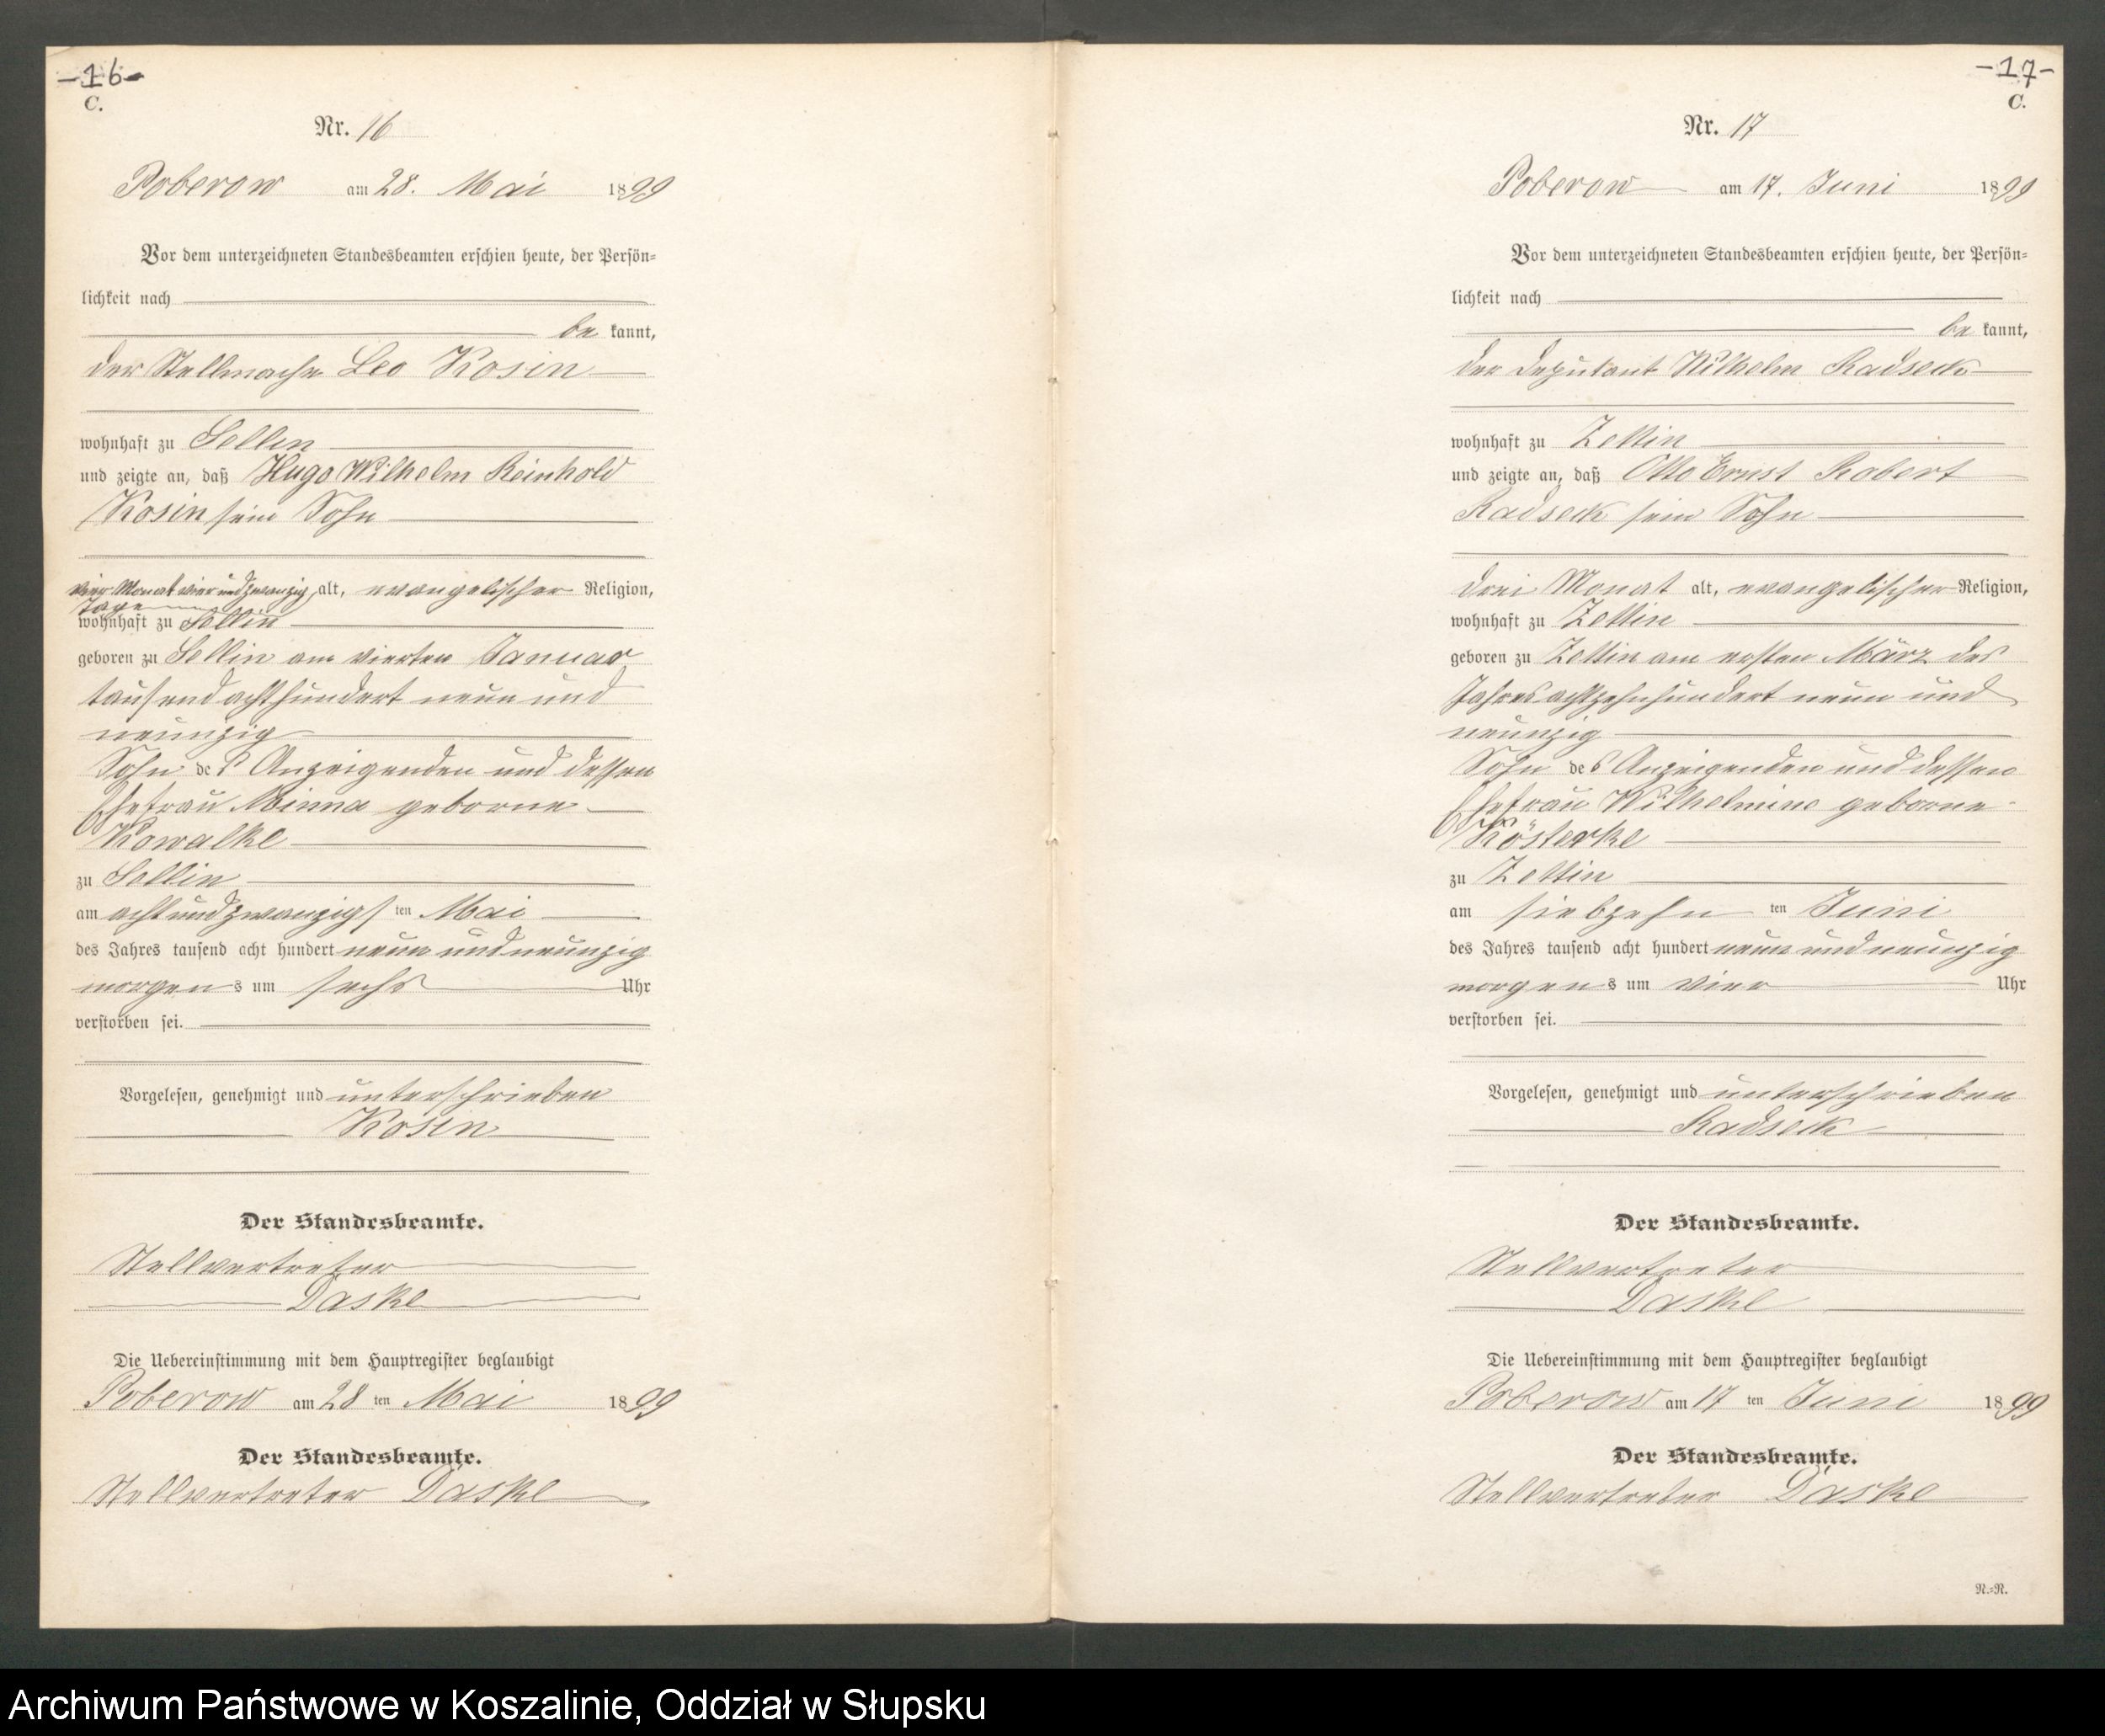 -16-
C.
Nr. 16
Poberow am 28. Mai 1899
Vor dem unterzeichneten Standesbeamten erschien heute, der Persön-
lichkeit nach
be kannt,
der Stellmacher Leo Kosin
wohnhaft zu Sellin
und zeigte an, daß Hugo Wilhelm Reinhold
Kosin sein Sohn
vier Monat vier und zwanzig alt, evangelischer Religion,
Tage
wohnhaft zu Sellin
geboren zu Sellin am vierten Januar
tausend achthundert neun und
neunzig
Sohn des Anzeigenden und dessen
Ehefrau Minna geborne
Kowalke
zu Sellin
am achtundzwanzigsten Mai
des Jahres tausend acht hundert neun und neunzig
morgens um sechs Uhr
verstorben sei.
Vorgelesen, genehmigt und unterschrieben
Kosin
Der Standesbeamte.
Stellvertreter
Daske
Die Uebereinstimmung mit dem Hauptregister beglaubigt
Poberow am 28 ten Mai 1899
Der Standesbeamte.
Stellvertreter Daske
-17-
C.
Nr. 17
Poberow am 17. Juni 1899
Vor dem unterzeichneten Standesbeamten erschien heute, der Persön-
lichkeit nach
be kannt,
der Deputant Wilhelm Radseck
wohnhaft zu Zettin
und zeigte an, daß Otto Ernst Robert
Radseck sein Sohn
drei Monat alt, evangelischer Religion,
wohnhaft zu Zettin
geboren zu Zettin am ersten März des
Jahres achtzehnhundert neun und
neunzig
Sohn des Anzeigenden und dessen
Ehefrau Wilhelmine geborne
Kösterke
zu Zettin
am siebzehn ten Juni
des Jahres tausend acht hundert neun und neunzig
morgens um vier Uhr
verstorben sei.
Vorgelesen, genehmigt und unterschrieben
Radseck
Der Standesbeamte.
Stellvertreter
Daske
Die Uebereinstimmung mit dem Hauptregister beglaubigt
Poberow am 17 ten Juni 1899
Der Standesbeamte.
Stellvertreter Daske
N.=N.
Archiwum Państwowe w Koszalinie, Oddział w Słupsku